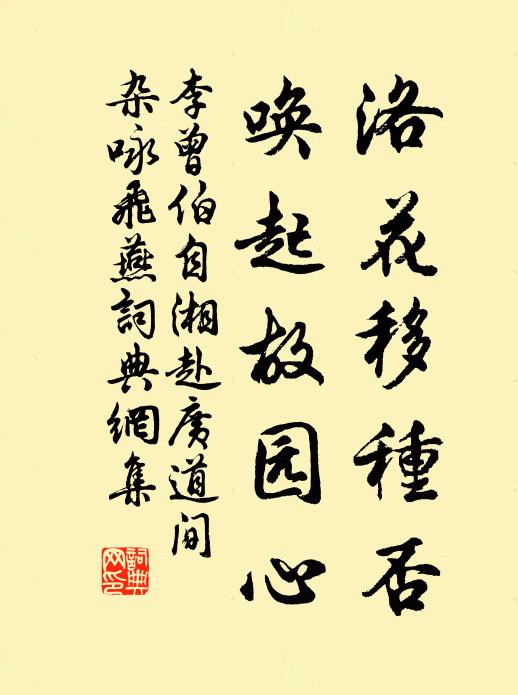 洛花移種否
唤起故园心
李曾伯自湘赴廣道间
杂咏飛燕詞典網集
詞典
网印